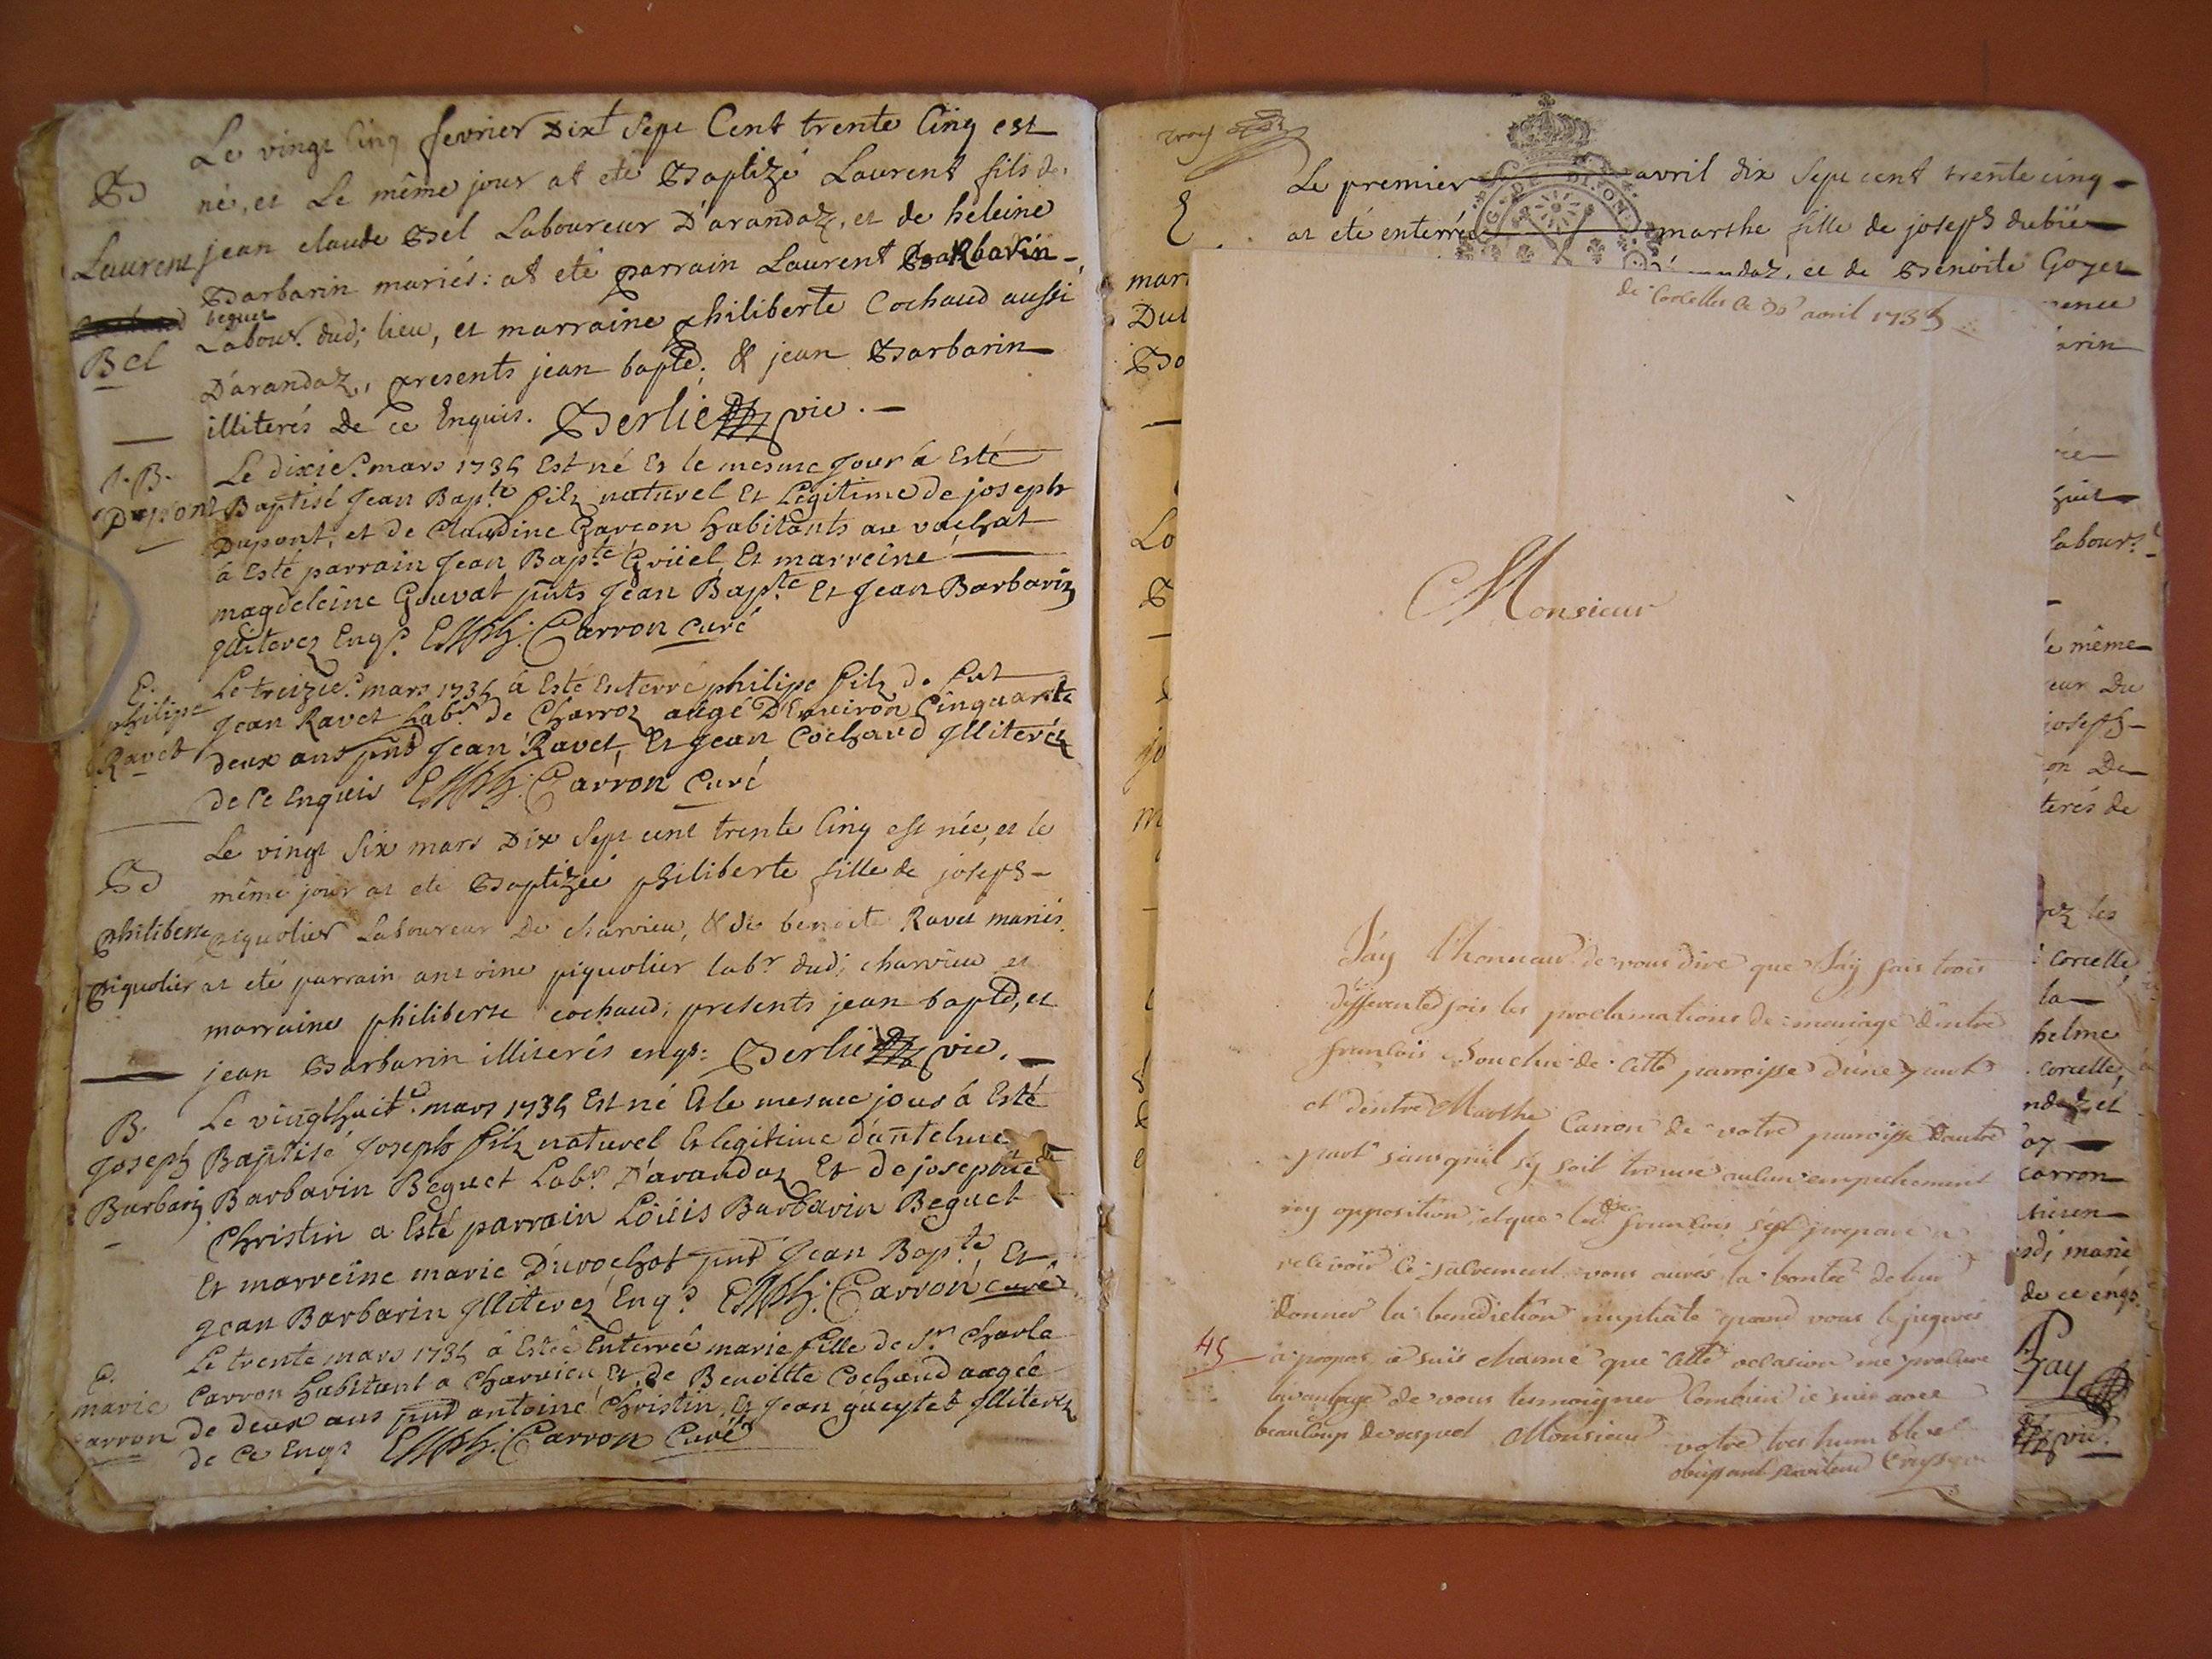 Le vingt Cinq fevrier Dixt Sept Cent trente Cinq est
B
né, et Le même jour at eté Baptizé Laurent fils de
Laurent
jean claude Bel Laboureur D'arandaz, et de heleine
Barbarin mariés: at eté parrain Laurent Barbarin
beguet
Bel
Labour. dud; lieu, et marraine philiberte Cochaud aussi
D'arandaz, presents jean bapte. & jean Barbarin
illiterés de ce Enquis. Berlie vic.
J. B.
Le dixie. mars 1735 Est né Et le mesme Jour â Esté
Dupont
Baptisé Jean Bapte filz naturel Et Legitime de joseph
Dupont, et de Claudine Garçon habitants au vachat
â Esté parrain Jean Bapte Grüel Et marreine
magdeleine Gouvat pnts Jean Bapte Et Jean Barbarin
Jlliterez Enqs. Carron curé
E.
Le treizie. mars 1735 â Esté Enterré philipe filz de fut
philipe
Jean Ravet Labr. de Charroz aagé D'Environ Cinquante
Ravet
deux ans pnt Jean Ravet, Et Jean Cochaud Jlliterez
de Ce Enquis Carron Curé
Le vingt Six mars Dix Sept cent trente Cinq est née, et le
B
même jour at eté Baptizée philiberte fille de joseph
philiberte
piquolier Laboureur de charvieu, & de benoite Ravet mariés
piquolier
at eté parrain antoine piquolier labr dud; charvieu et
marraine philiberte cochaud; presents jean bapte, et
jean Barbarin illiterés enqs: Berlie vic.
B.
Le vingthuite. mars 1735 Est né Et le mesme jour â Esté
Joseph
Baptisé Joseph filz naturel Et legitime d'antelme
Barbarin
Barbarin Beguet Labr. D'arandaz Et de josephte
Christin a Esté parrain Loüis Barbarin Beguet
Et marreine marie Duvochat pnt Jean Bapte Et
Jean Barbarin Jlliterez Enqs Carron curé
E.
Le trente mars 1735 â Esté Enterrée marie fille de Sr. Charle
marie
Carron habitant a Charvieu Et de Benoitte Cochaud aagée
arron
de deux ans pnt antoine Christin Et Jean gueytet Jlliterez
de Ce Enqs Carron Curé
E
Le premier avril dix Sept cent trente cinq
at eté enterrée marthe fille de joseph dubie
ndaz, et de Benoite Goyet
mar
Dub
Bo
Lo
jo
m
ence
arin
huit
labourr.
le même
eur Du
joseph
on De
terés de
rez les
Corcelle,
la
helme
Corcelle,
ndaz et
carron
sd; marié
de ce enqs.
Gay
vic.
de Corcelles ce 30 avril 1735
Monsieur
J'ay l'honneur de vous dire que J'ay fais trois
differentes fois les proclamations de mariage dentre
francois Souchu de cette parroisse d'une part
et dentre Marthe Carron de votre parroisse d'autre
part sans quil s'y soit trouvé aulcun empechement
ny opposition, et que led françois s'est preparé a
recevoir ce sacrement vous aures la bontée de leur
donner la benediction nuptiale quand vous le jugerés
45
a propos je suis charmé que cette occasion me procure
lavantage de vous temoigner combien je suis avec
beaucoup de respect Monsieur votre tres humble et
obeissant serviteur